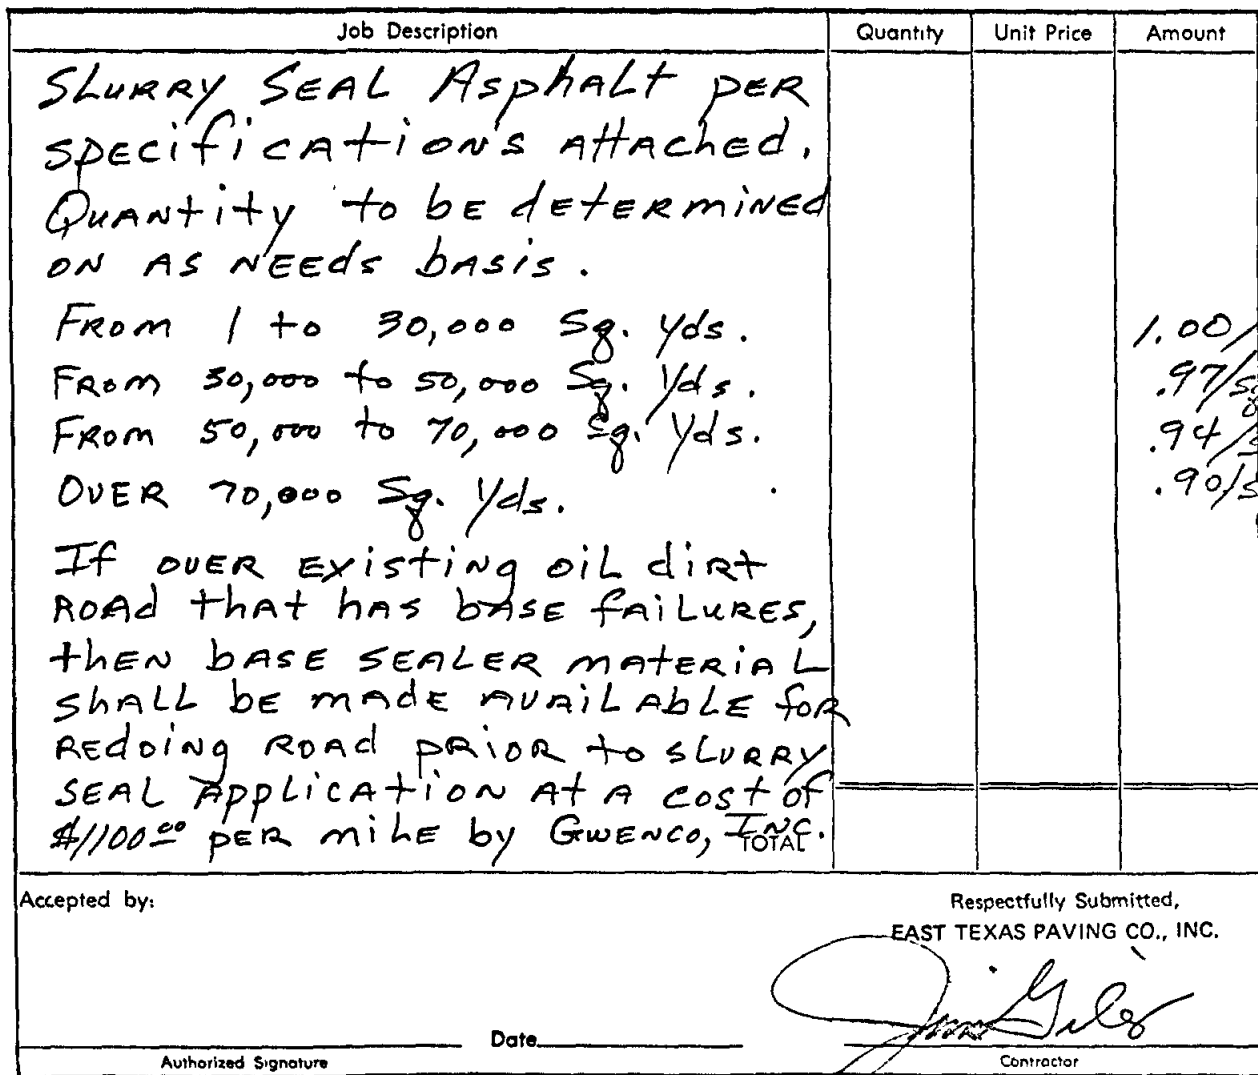 Job Description Quantity Unit Price Amount
SLURRY SEAL Asphalt per
specifications attached.
Quantity to be determined
on as needs basis.
From 1 to 30,000 Sq. Yds. 1.00/
From 30,000 to 50,000 Sq. Yds. .97/s
From 50,000 to 70,000 Sq. Yds. .94/s
Over 70,000 Sq. Yds. .90/s
If over existing oil dirt
road that has base failures,
then base sealer material
shall be made available for
redoing road prior to slurry
seal application at a cost of
$1100.00 per mile by Gwenco, Inc.
TOTAL
Accepted by: Respectfully Submitted,
EAST TEXAS PAVING CO., INC.
Date
Authorized Signature Contractor